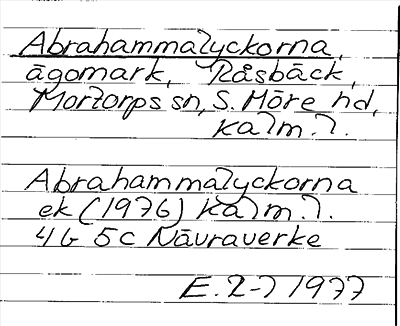 Abrahammalyckorna,
ägomark, Råsbäck,
Mortorps sn, S. Möre hd,
Kalm. l.
Abrahammalyckorna
ek (1976) Kalm. l.
4G 5c Nävraverke
1977